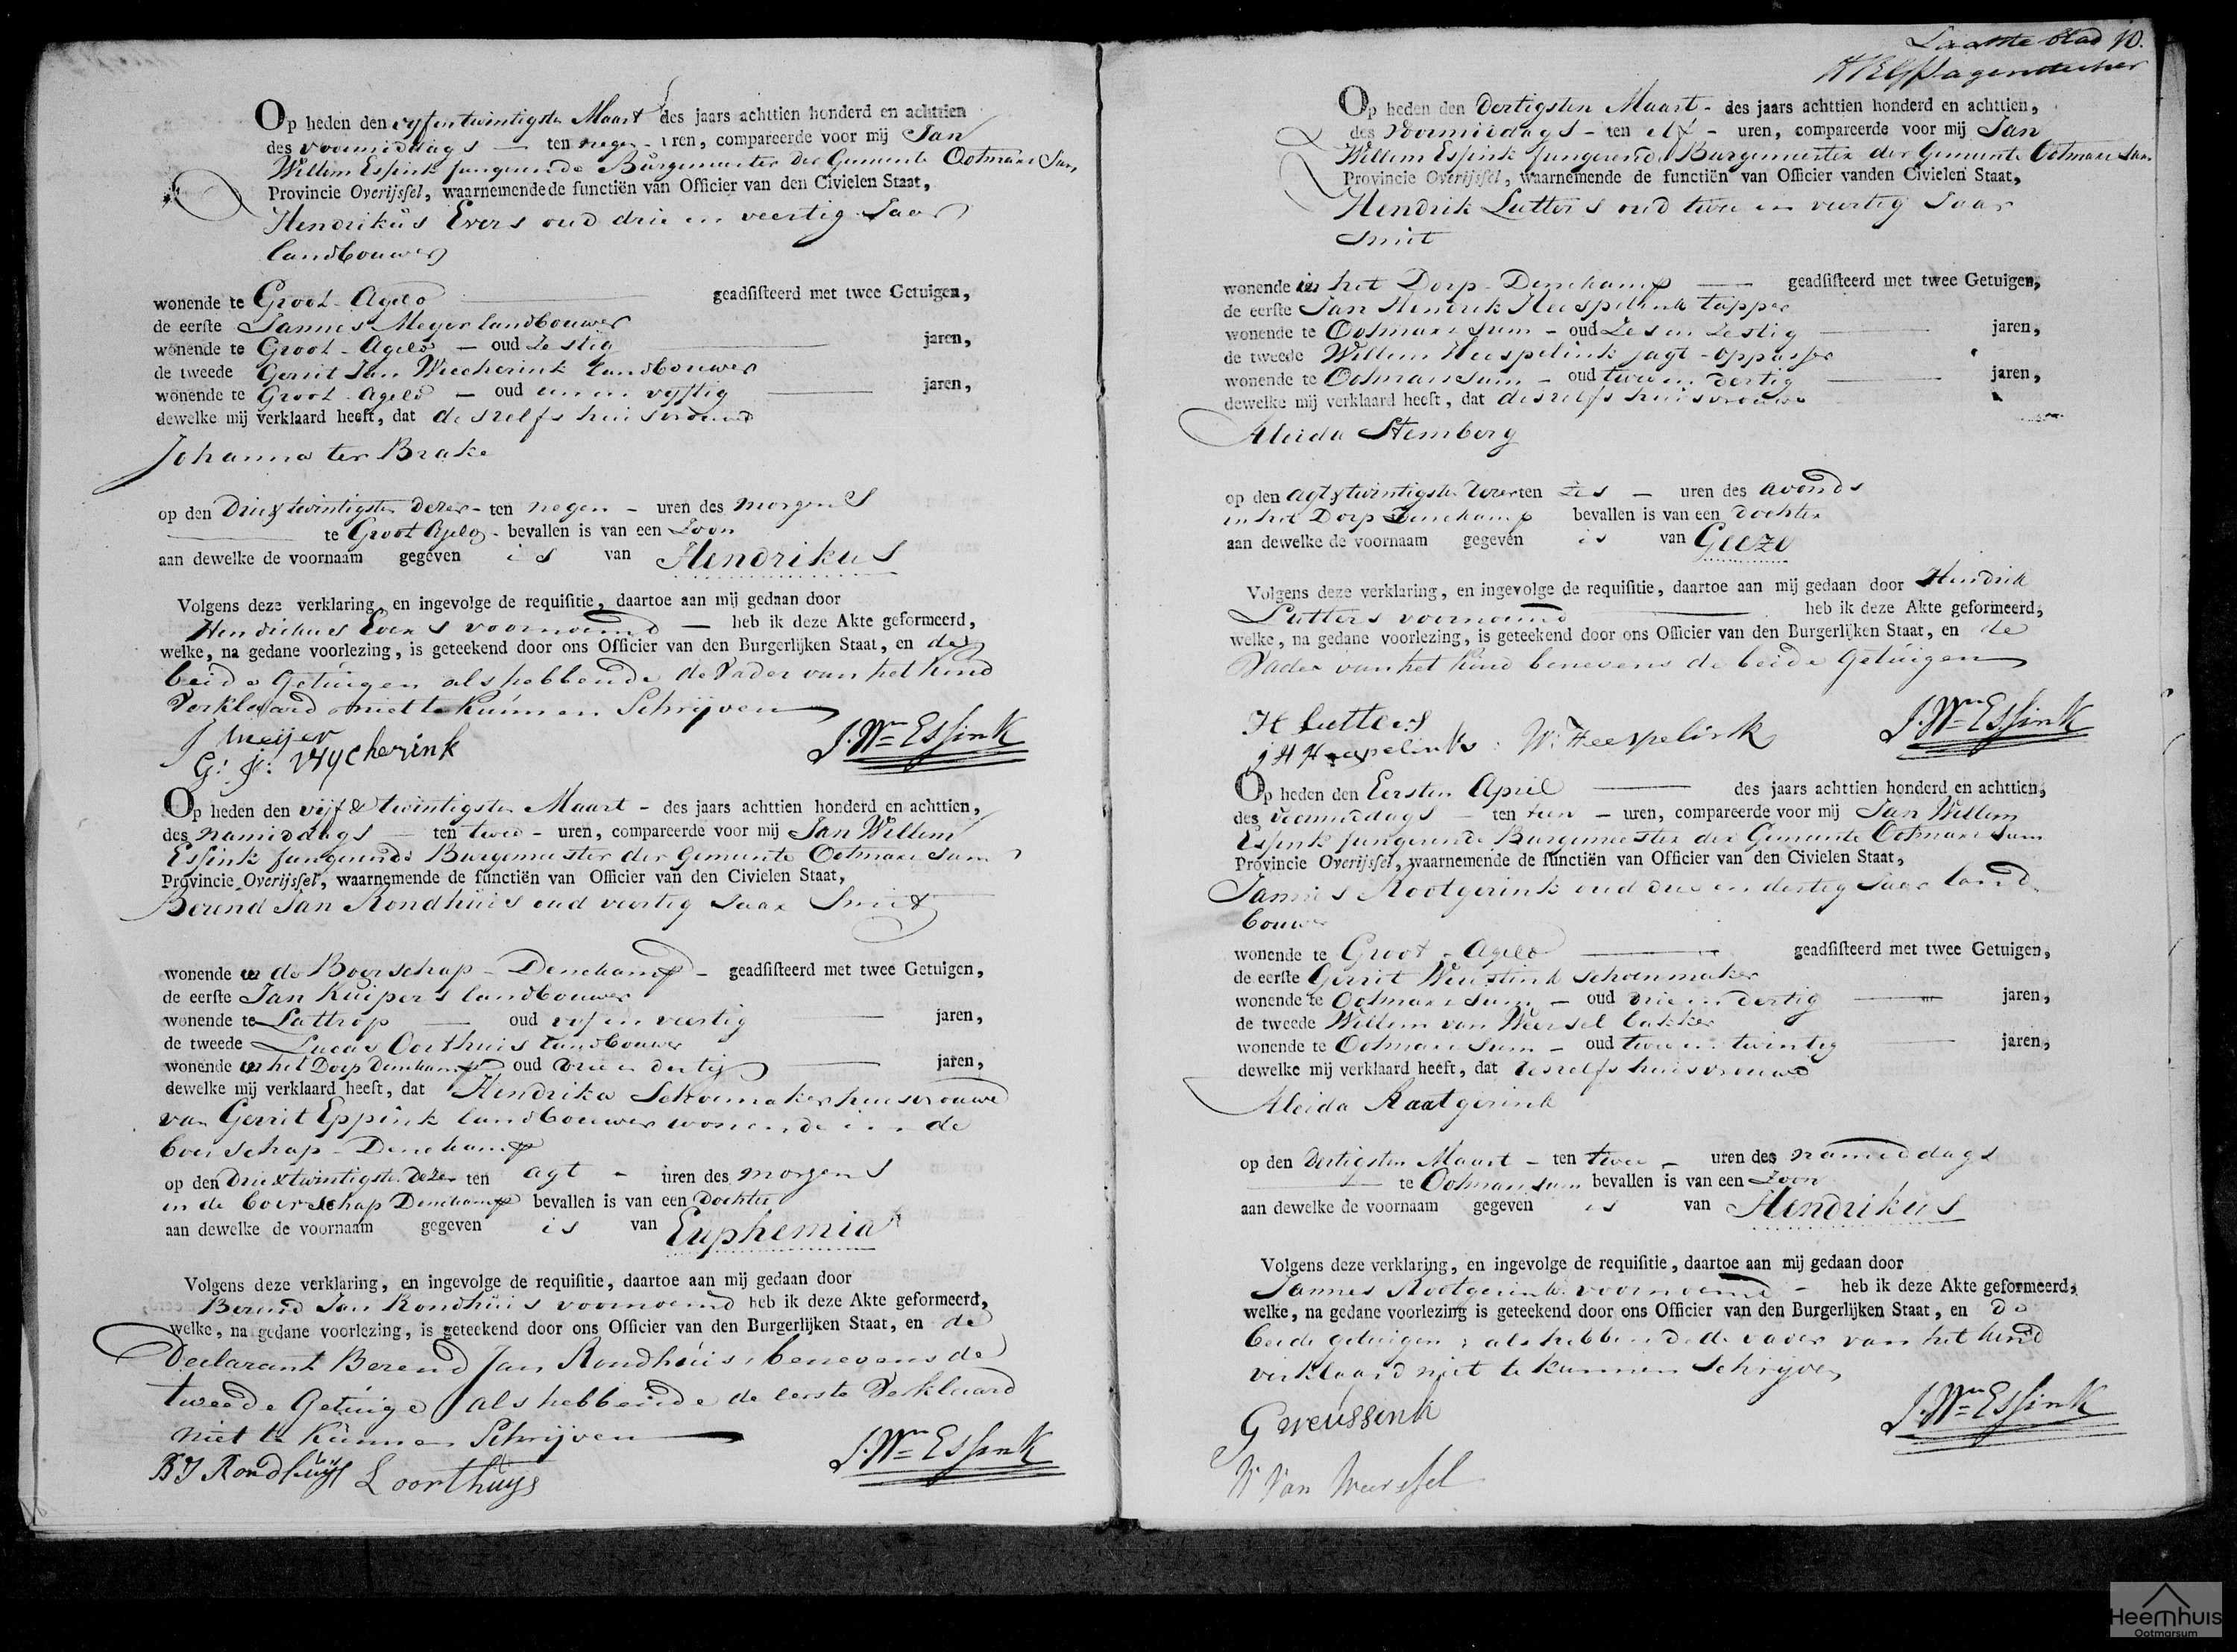 Op heden den vyfentwintigsten Maart des jaars achttien honderd en achttien
des voormiddags - ten negen - uren, compareerde voor mij Jan
Willem Essink fungerende Burgemeester der Gemeente Ootmarssum,
Provincie Overijssel, waarnemende de functiën van Officier van den Civielen Staat,
Hendrikus Evers oud drie en veertig Jaar
landbouwer
wonende te Groot-Agelo geadsisteerd met twee Getuigen,
de eerste Jannes Meyer landbouwer
wonende te Groot-Agelo - oud Zestig jaren,
de tweede Gerrit Jan Wiecherink landbouwer
wonende te Groot-Agelo - oud een en vyftig jaren,
dewelke mij verklaard heeft, dat deszelfs huisvrouwe
Johanna ter Brake
op den Drie & twintigsten dezer - ten negen - uren des morgens
te Groot Agelo - bevallen is van een Zoon
aan dewelke de voornaam gegeven is van Hendrikus
Volgens deze verklaring, en ingevolge de requisitie, daartoe aan mij gedaan door
Hendrikus Evers voornoemd - heb ik deze Akte geformeerd,
welke, na gedane voorlezing, is geteekend door ons Officier van den Burgerlijken Staat, en de
beide Getuigen als hebbende de Vader van het Kind
Verklaard niet te Kunnen Schrijven
J Meijer
G: J: Wycherink J. Wm Essink
Op heden den vijf & twintigsten Maart - des jaars achttien honderd en achttien,
des namiddags - ten twee - uren, compareerde voor mij Jan Willem
Essink fungerende Burgemeester der Gemeente Ootmarssum
Provincie Overijssel, waarnemende de functiën van Officier van den Civielen Staat,
Berend Jan Rondhuis oud veertig Jaar Smit
wonende in de Boerschap - Denekamp - geadsisteerd met twee Getuigen,
de eerste Jan Kuipers landbouwer
wonende te Lattrop - oud vyf en veertig jaren,
de tweede Lucas Oorthuis landbouwer
wonende in het Dorp Denekamp oud drie en dertig jaren,
dewelke mij verklaard heeft, dat Hendrika Schoemaker huisvrouwe
van Gerrit Eppink landbouwer wonende in de
boerschap - Denekamp
op den Drie & twintigsten dezer ten agt - uren des morgens
in de boerschap Denekamp bevallen is van een Dochter
aan dewelke de voornaam gegeven is van Euphemia
Volgens deze verklaring, en ingevolge de requisitie, daartoe aan mij gedaan door
Berend Jan Rondhuis voornoemd heb ik deze Akte geformeerd,
welke, na gedane voorlezing, is geteekend door ons Officier van den Burgerlijken Staat, en de
Declarant Berend Jan Rondhuis, benevens de
tweede Getuige als hebbende de eerste Verklaard
niet te Kunnen Schrijven
BJ Rondhuijs L oorthuys J. Wm Essink
Laatste blad 10.
Op heden den Dertigsten Maart - des jaars achttien honderd en achttien,
des voormiddags - ten elf - uren, compareerde voor mij Jan
Willem Essink fungerende Burgemeester der Gemeente Ootmarssum
Provincie Overijssel, waarnemende de functiën van Officier vanden Civielen Staat,
Hendrik Lutters oud twee en veertig Jaar
Smit
wonende in het Dorp - Denekamp - geadsisteerd met twee Getuigen,
de eerste Jan Hendrik Heespelink tapper
wonende te Ootmarssum - oud Zes en Zestig jaren,
de tweede Willem Heespelink jagt-oppasser
wonende te Ootmarssum - oud twee en dertig jaren,
dewelke mij verklaard heeft, dat deszelfs huisvrouwe
Aleida Stemberg
op den agt & twintigsten dezer ten Zes - uren des avonds
in het Dorp Denekamp bevallen is van een dochter
aan dewelke de voornaam gegeven is van Geeze
Volgens deze verklaring, en ingevolge de requisitie, daartoe aan mij gedaan door Hendrik
Lutters voornoemd heb ik deze Akte geformeerd,
welke, na gedane voorlezing, is geteekend door ons Officier van den Burgerlijken Staat, en de
Vader van het Kind benevens de beide Getuigen
H Lutters J. Wm Essink
J H Heespelink: W: Heespelink
Op heden den Eersten April des jaars achttien honderd en achttien,
des voormiddags - ten tien - uren, compareerde voor mij Jan Willem
Essink fungerende Burgemeester der Gemeente Ootmarssum
Provincie Overijssel, waarnemende de functiën van Officier van den Civielen Staat,
Jannes Rootgerink oud drie en dertig Jaar land
bouwer
wonende te Groot-Agelo geadsisteerd met twee Getuigen,
de eerste Gerrit Weustink schoenmaker
wonende te Ootmarssum - oud drie en dertig jaren,
de tweede Willem van Weersel bakker
wonende te Ootmarssum - oud twee en twintig jaren,
dewelke mij verklaard heeft, dat deszelfs huisvrouwe
Aleida Raatgerink
op den dertigsten Maart - ten twee - uren des namiddags
te Ootmarssum bevallen is van een Zoon
aan dewelke de voornaam gegeven is van Hendrikus
Volgens deze verklaring, en ingevolge de requisitie, daartoe aan mij gedaan door
Jannes Rootgerink voornoemd - heb ik deze Akte geformeerd,
welke, na gedane voorlezing is geteekend door ons Officier van den Burgerlijken Staat, en de
beide getuigen, als hebbende de vader van het kind
verklaard niet te kunnen schrijven
G weussink J. Wm Essink
W Van Weerssel
Heemhuis
Ootmarsum